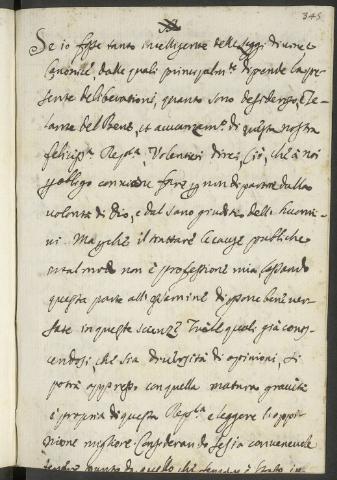 345
Se io fosse tanto intelligente delle leggi divine e
Canoniche, dalle quali principalm.te dipende la pre-
sente deliberatione, quanto sono desideroso, e Ze-
lante del Bene, et accrescim.to di questa nostra
feliciss.a Rep.ca, Volentieri direi ciò, che à noi
conviene fare per non di partire dalla
volontà di Dio, e dal sano giuditio delli huomi-
ni. Ma perche il trattare le cause publiche
in tal modo non è professione mia lassando
questa parte all' esamine di persone bene ver-
sate in queste scienze, trà le quali già conos-
cendosi, che sia diversità di opinioni, si
potrà appresso con quella matura gravità
è propria di questa Rep.ca eleggere l'oppi-
nione migliore. Considerando se sia convenevole